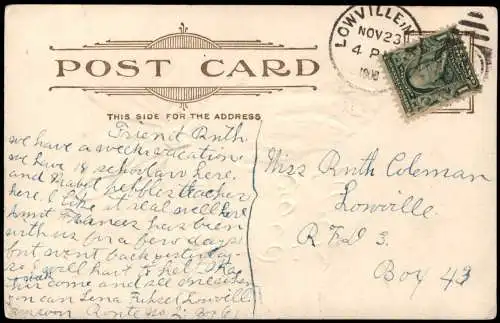 POST CARD
THIS SIDE FOR THE ADDRESS
LOWVILLE, N.
NOV 23
4 P
1908
Friend Ruth
we have a week vacation
we have 18 scholars here.
and Mabel teacher
here. I like it real well here
Aunt Frances has been
with us for a few days
but went back yesterday.
so will have to help Ma
this week come and see me when
you can Lena Lowville
Route no. 2. Box 61
Miss Ruth Coleman
Lowville.
R F D 3.
Box 43